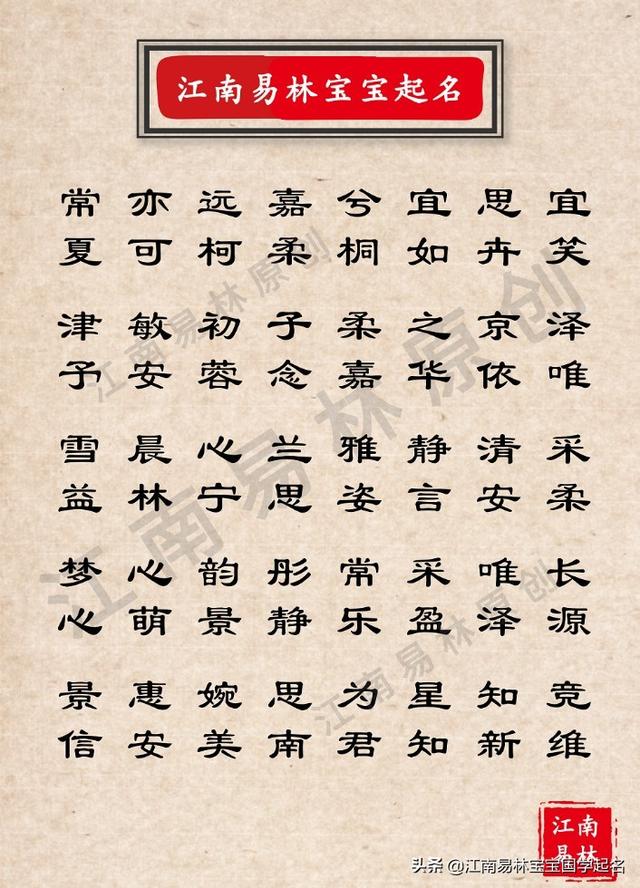 江南易林宝宝起名
常亦远嘉兮宜思宜
夏可柯柔桐如卉笑
津敏初子柔之京泽
予安蓉念嘉华依唯
雪晨心兰雅静清采
益林宁思姿言安柔
梦心韵彤常采唯长
心萌景静乐盈泽源
景惠婉思为星知竞
信安美南君知新维
江南易林原创
江南易林原创
江南易林原创
江南
易林
头条 @江南易林宝宝国学起名